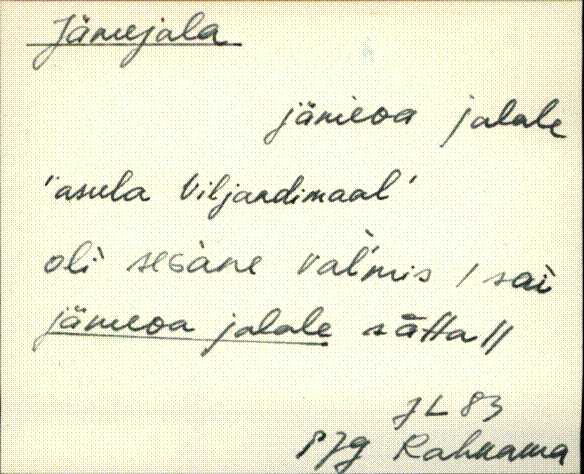 Jämejala
jämeoa jalale
'asula Viljandimaal'
oli sesàne val'mis / sai
jämeoa jalale sätta //
JL 83
Pjg Rahnama